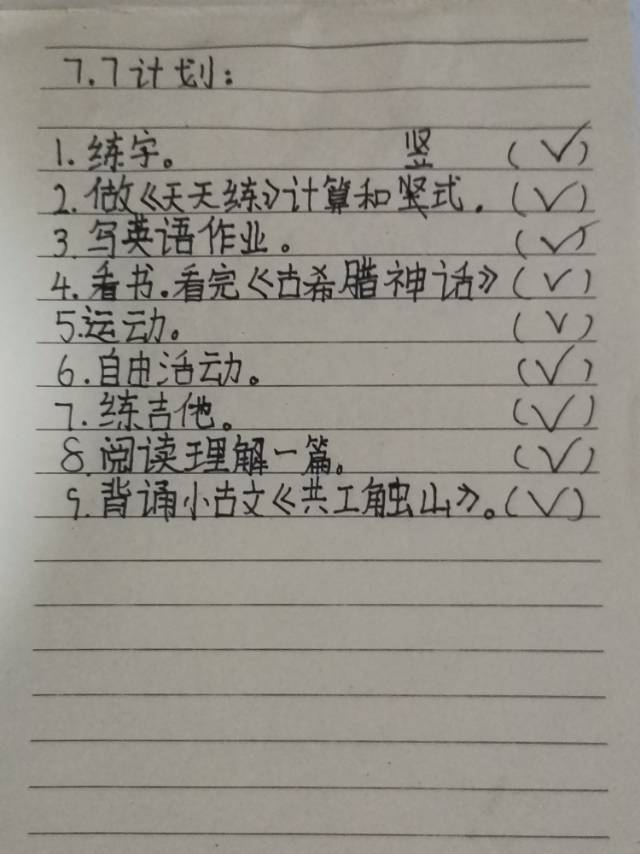 7.7计划：
1.练字。 竖 (√)
2.做《天天练》计算和竖式.(√)
3.写英语作业。 (√)
4.看书.看完《古希腊神话》(√)
5.运动。 (√)
6.自由活动。 (√)
7.练吉他。 (√)
8.阅读理解一篇。 (√)
9.背诵小古文《共工触山》。(√)